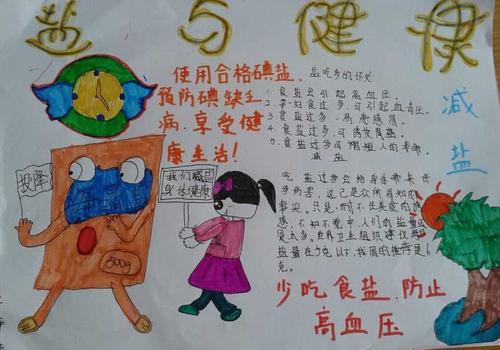 盐与健康
使用合格碘盐,
预防碘缺乏
病,享受健
康生活!
盐吃多的坏处
1、食盐会引起高血压.
2、孕妇食过多,可引起血高压.
3、食盐过多,易患感冒.
4、食盐过多,可诱发胃癌.
5、食盐过多可缩短人的寿命.
减盐
减盐
吃盐过多会给身体带来许
多伤害,这已是众所周知的
事实。只是,耐不住美食的诱
惑,不知不觉中,人们的盐量
是太多。世界卫生组织建议
盐量在6克以下,我国的推荐是6
克。
投降
我们减盐
身体健康
500g
少吃食盐.防止
高血压